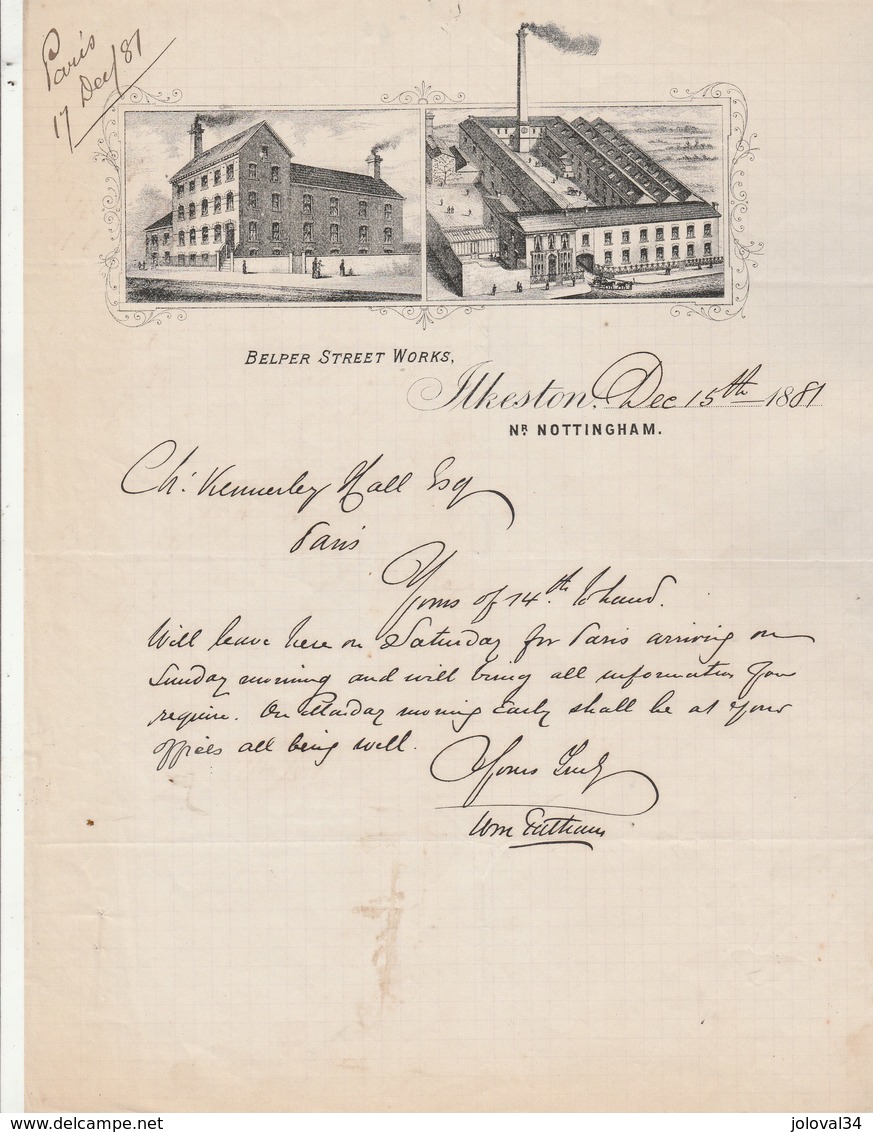 Paris
17 Dec/81
BELPER STREET WORKS,
Ilkeston, Dec 15th 1881
NR. NOTTINGHAM.
Ch: Kennerley Hall Esq
Paris
Yours of 14th to hand.
Will leave here on Saturday for Paris arriving on
Sunday morning and will bring all information you
require. On Monday morning Early shall be at your
offices all being well.
Yours Truly
Wm
www.delcampe.net
joloval34